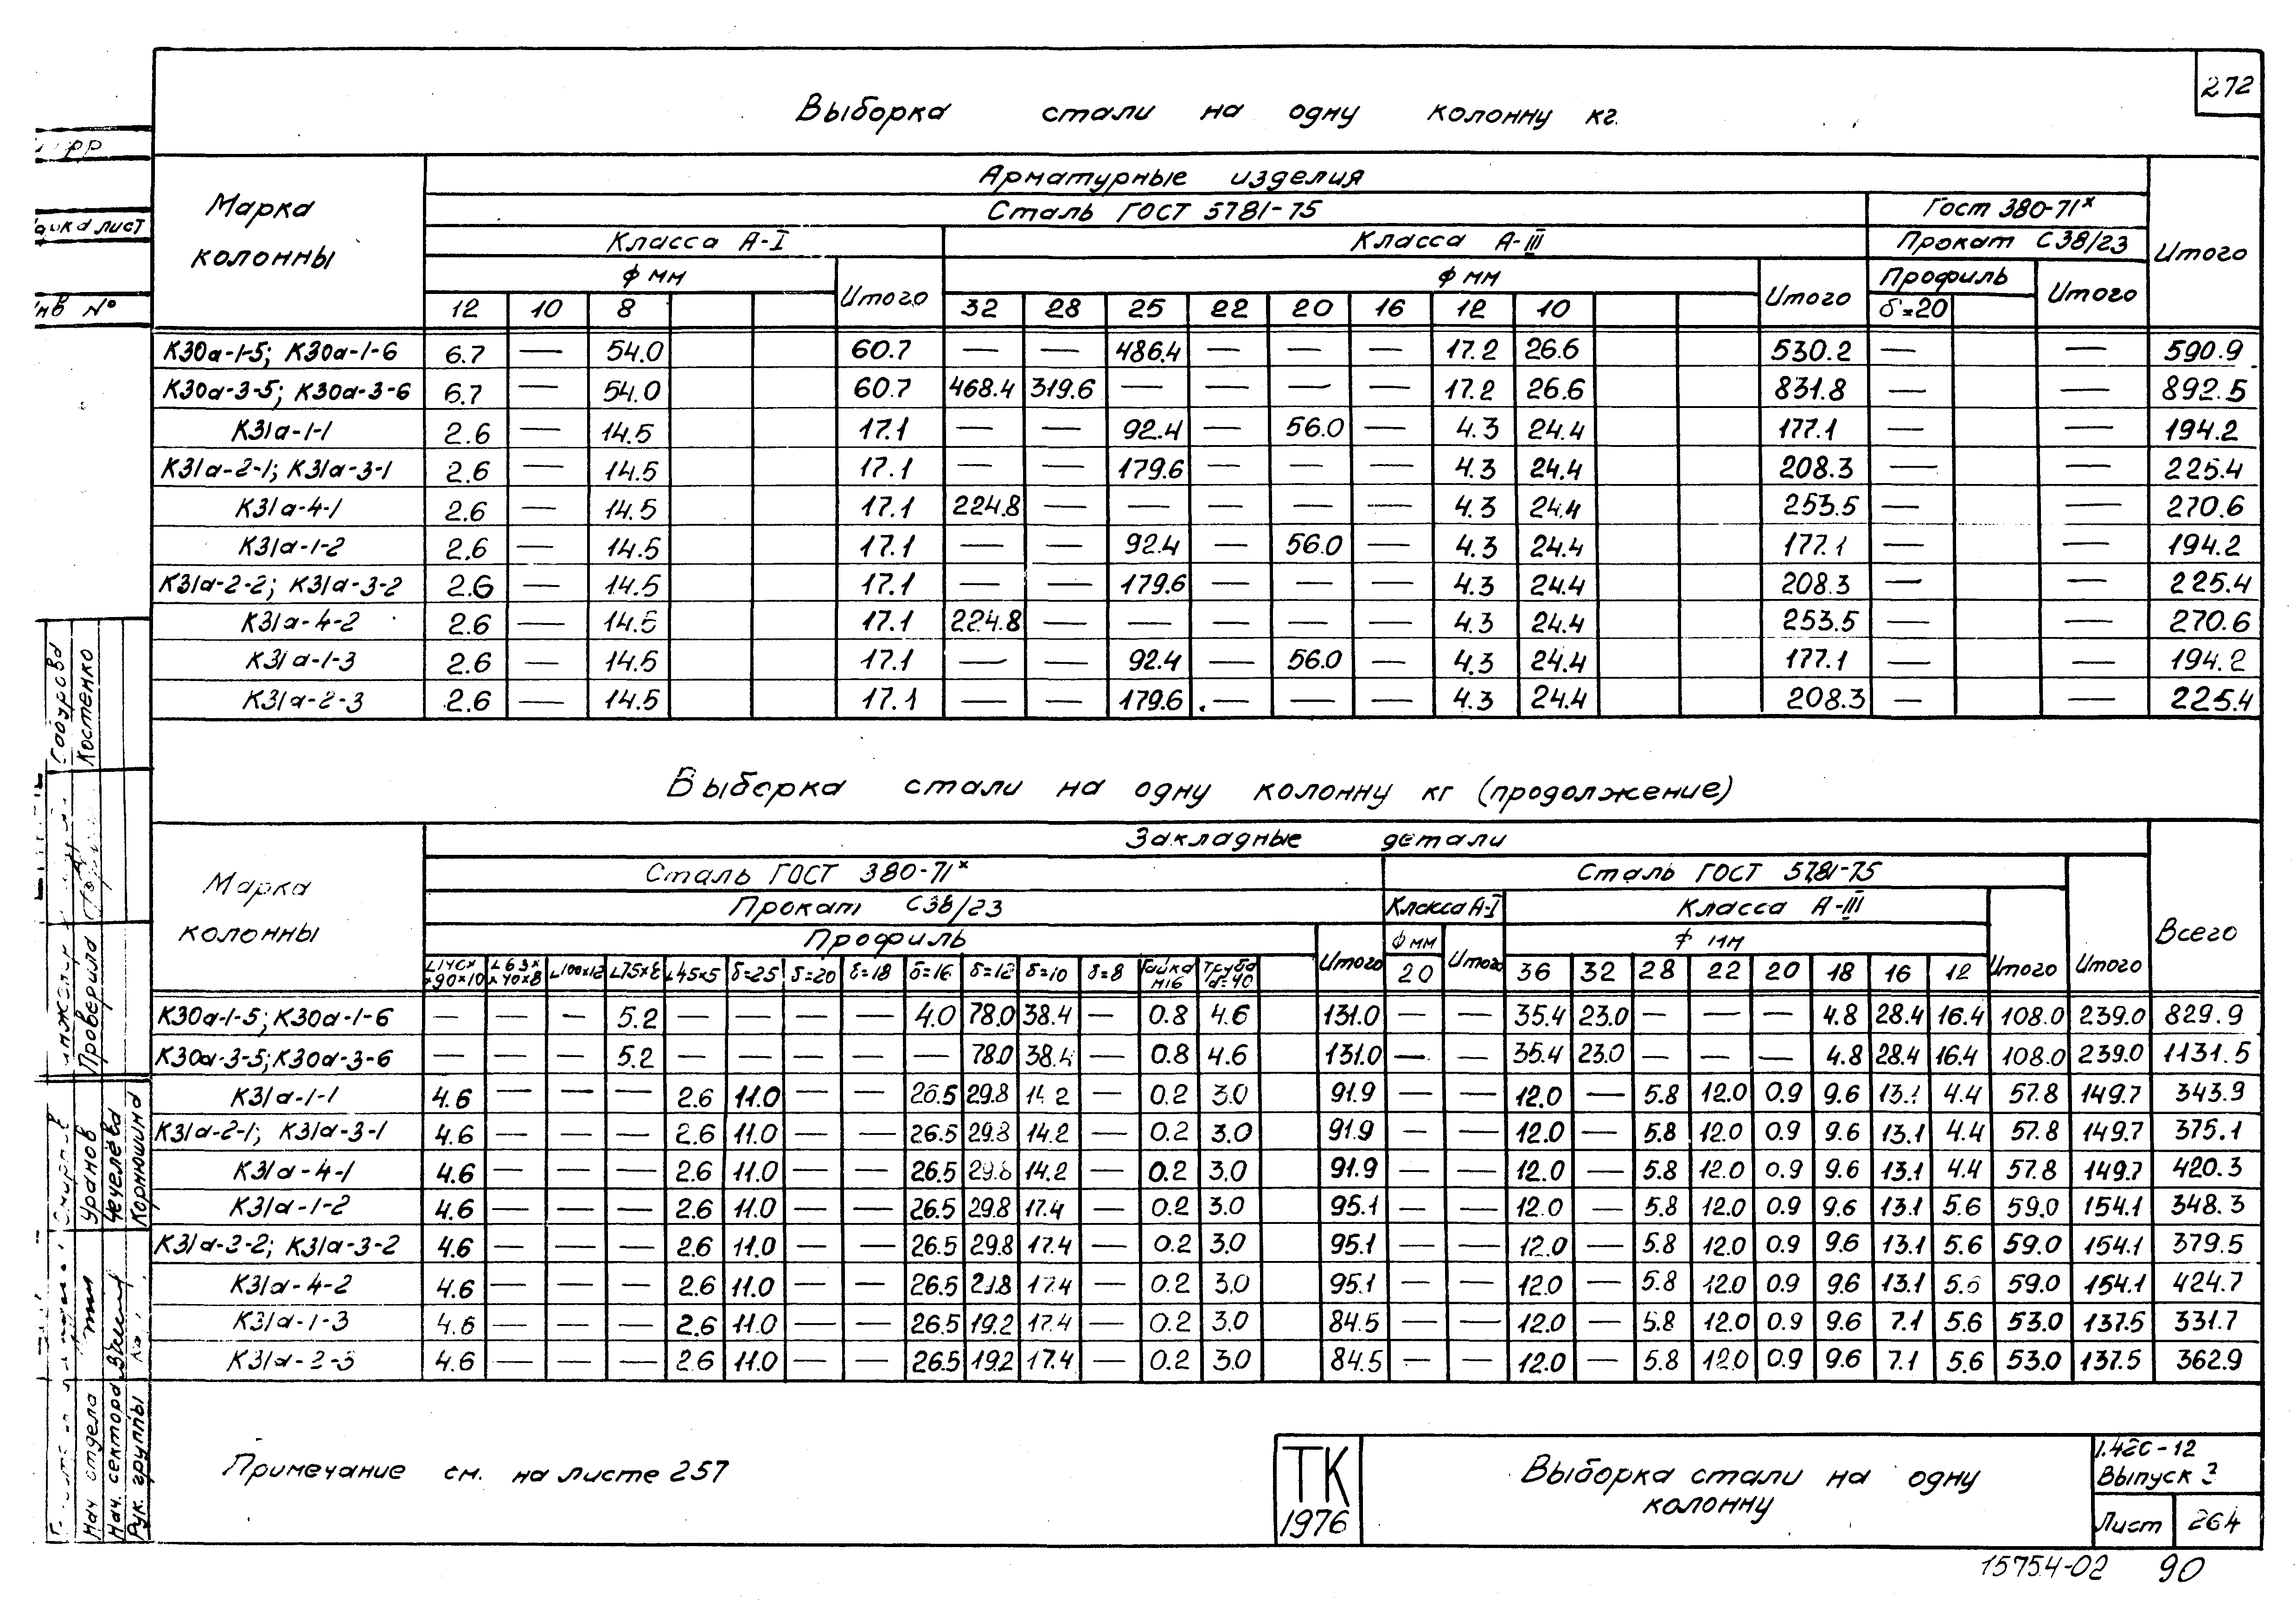 272
Выборка стали на одну колонну кг.
Марка колонны
Арматурные изделия
Итого
Сталь ГОСТ 5781-75
Гост 380-71х
Класса А-I
Класса А-III
Прокат С38/23
ф мм
Итого
ф мм
Итого
Профиль
Итого
12 10 8 32 28 25 22 20 16 12 10 δ=20
К30а-1-5; К30а-1-6 6.7 — 54.0 60.7 — — 486.4 — — — 17.2 26.6 530.2 — — 590.9
К30а-3-5; К30а-3-6 6.7 — 54.0 60.7 468.4 319.6 — — — — 17.2 26.6 831.8 — — 892.5
К31а-1-1 2.6 — 14.5 17.1 — — 92.4 — 56.0 — 4.3 24.4 177.1 — — 194.2
К31а-2-1; К31а-3-1 2.6 — 14.5 17.1 — — 179.6 — — — 4.3 24.4 208.3 — — 225.4
К31а-4-1 2.6 — 14.5 17.1 224.8 — — — — — 4.3 24.4 253.5 — — 270.6
К31а-1-2 2.6 — 14.5 17.1 — — 92.4 — 56.0 — 4.3 24.4 177.1 — — 194.2
К31а-2-2; К31а-3-2 2.6 — 14.5 17.1 — — 179.6 — — — 4.3 24.4 208.3 — — 225.4
К31а-4-2 2.6 — 14.5 17.1 224.8 — — — — — 4.3 24.4 253.5 — — 270.6
К31а-1-3 2.6 — 14.5 17.1 — — 92.4 — 56.0 — 4.3 24.4 177.1 — — 194.2
К31а-2-3 2.6 — 14.5 17.1 — — 179.6 — — — 4.3 24.4 208.3 — — 225.4
Выборка стали на одну колонну кг (продолжение)
Марка колонны
Закладные детали
Всего
Сталь ГОСТ 380-71х
Сталь ГОСТ 5781-75
Итого
Прокат С38/23
Класса А-I
Класса А-III
Итого
Профиль
Итого
ф мм
Итого
ф мм
L140×90×10 L63×40×8 L100×12 L75×6 L45×5 δ=25 δ=20 δ=18 δ=16 δ=12 δ=10 δ=8 Гайка М16 Труба d=40 20 36 32 28 22 20 18 16 12
К30а-1-5; К30а-1-6 — — — 5.2 — — — — 4.0 78.0 38.4 — 0.8 4.6 131.0 — — 35.4 23.0 — — — 4.8 28.4 16.4 108.0 239.0 829.9
К30а-3-5; К30а-3-6 — — — 5.2 — — — — — 78.0 38.4 — 0.8 4.6 131.0 — — 35.4 23.0 — — — 4.8 28.4 16.4 108.0 239.0 1131.5
К31а-1-1 4.6 — — — 2.6 11.0 — — 26.5 29.8 14.2 — 0.2 3.0 91.9 — — 12.0 — 5.8 12.0 0.9 9.6 13.1 4.4 57.8 149.7 343.9
К31а-2-1; К31а-3-1 4.6 — — — 2.6 11.0 — — 26.5 29.8 14.2 — 0.2 3.0 91.9 — — 12.0 — 5.8 12.0 0.9 9.6 13.1 4.4 57.8 149.7 375.1
К31а-4-1 4.6 — — — 2.6 11.0 — — 26.5 29.8 14.2 — 0.2 3.0 91.9 — — 12.0 — 5.8 12.0 0.9 9.6 13.1 4.4 57.8 149.7 420.3
К31а-1-2 4.6 — — — 2.6 11.0 — — 26.5 29.8 17.4 — 0.2 3.0 95.1 — — 12.0 — 5.8 12.0 0.9 9.6 13.1 5.6 59.0 154.1 348.3
К31а-2-2; К31а-3-2 4.6 — — — 2.6 11.0 — — 26.5 29.8 17.4 — 0.2 3.0 95.1 — — 12.0 — 5.8 12.0 0.9 9.6 13.1 5.6 59.0 154.1 379.5
К31а-4-2 4.6 — — — 2.6 11.0 — — 26.5 29.8 17.4 — 0.2 3.0 95.1 — — 12.0 — 5.8 12.0 0.9 9.6 13.1 5.6 59.0 154.1 424.7
К31а-1-3 4.6 — — — 2.6 11.0 — — 26.5 19.2 17.4 — 0.2 3.0 84.5 — — 12.0 — 5.8 12.0 0.9 9.6 7.1 5.6 53.0 137.5 331.7
К31а-2-3 4.6 — — — 2.6 11.0 — — 26.5 19.2 17.4 — 0.2 3.0 84.5 — — 12.0 — 5.8 12.0 0.9 9.6 7.1 5.6 53.0 137.5 362.9
Примечание см. на листе 257
ТК
1976
Выборка стали на одну
колонну
1.420-12
Выпуск 3
Лист 264
15754-02 90
лист
инв №
Костенко
Проверила
Уранов
Чечелева
Корнюшина
Нач отдела
Нач. сектора
Рук. группы